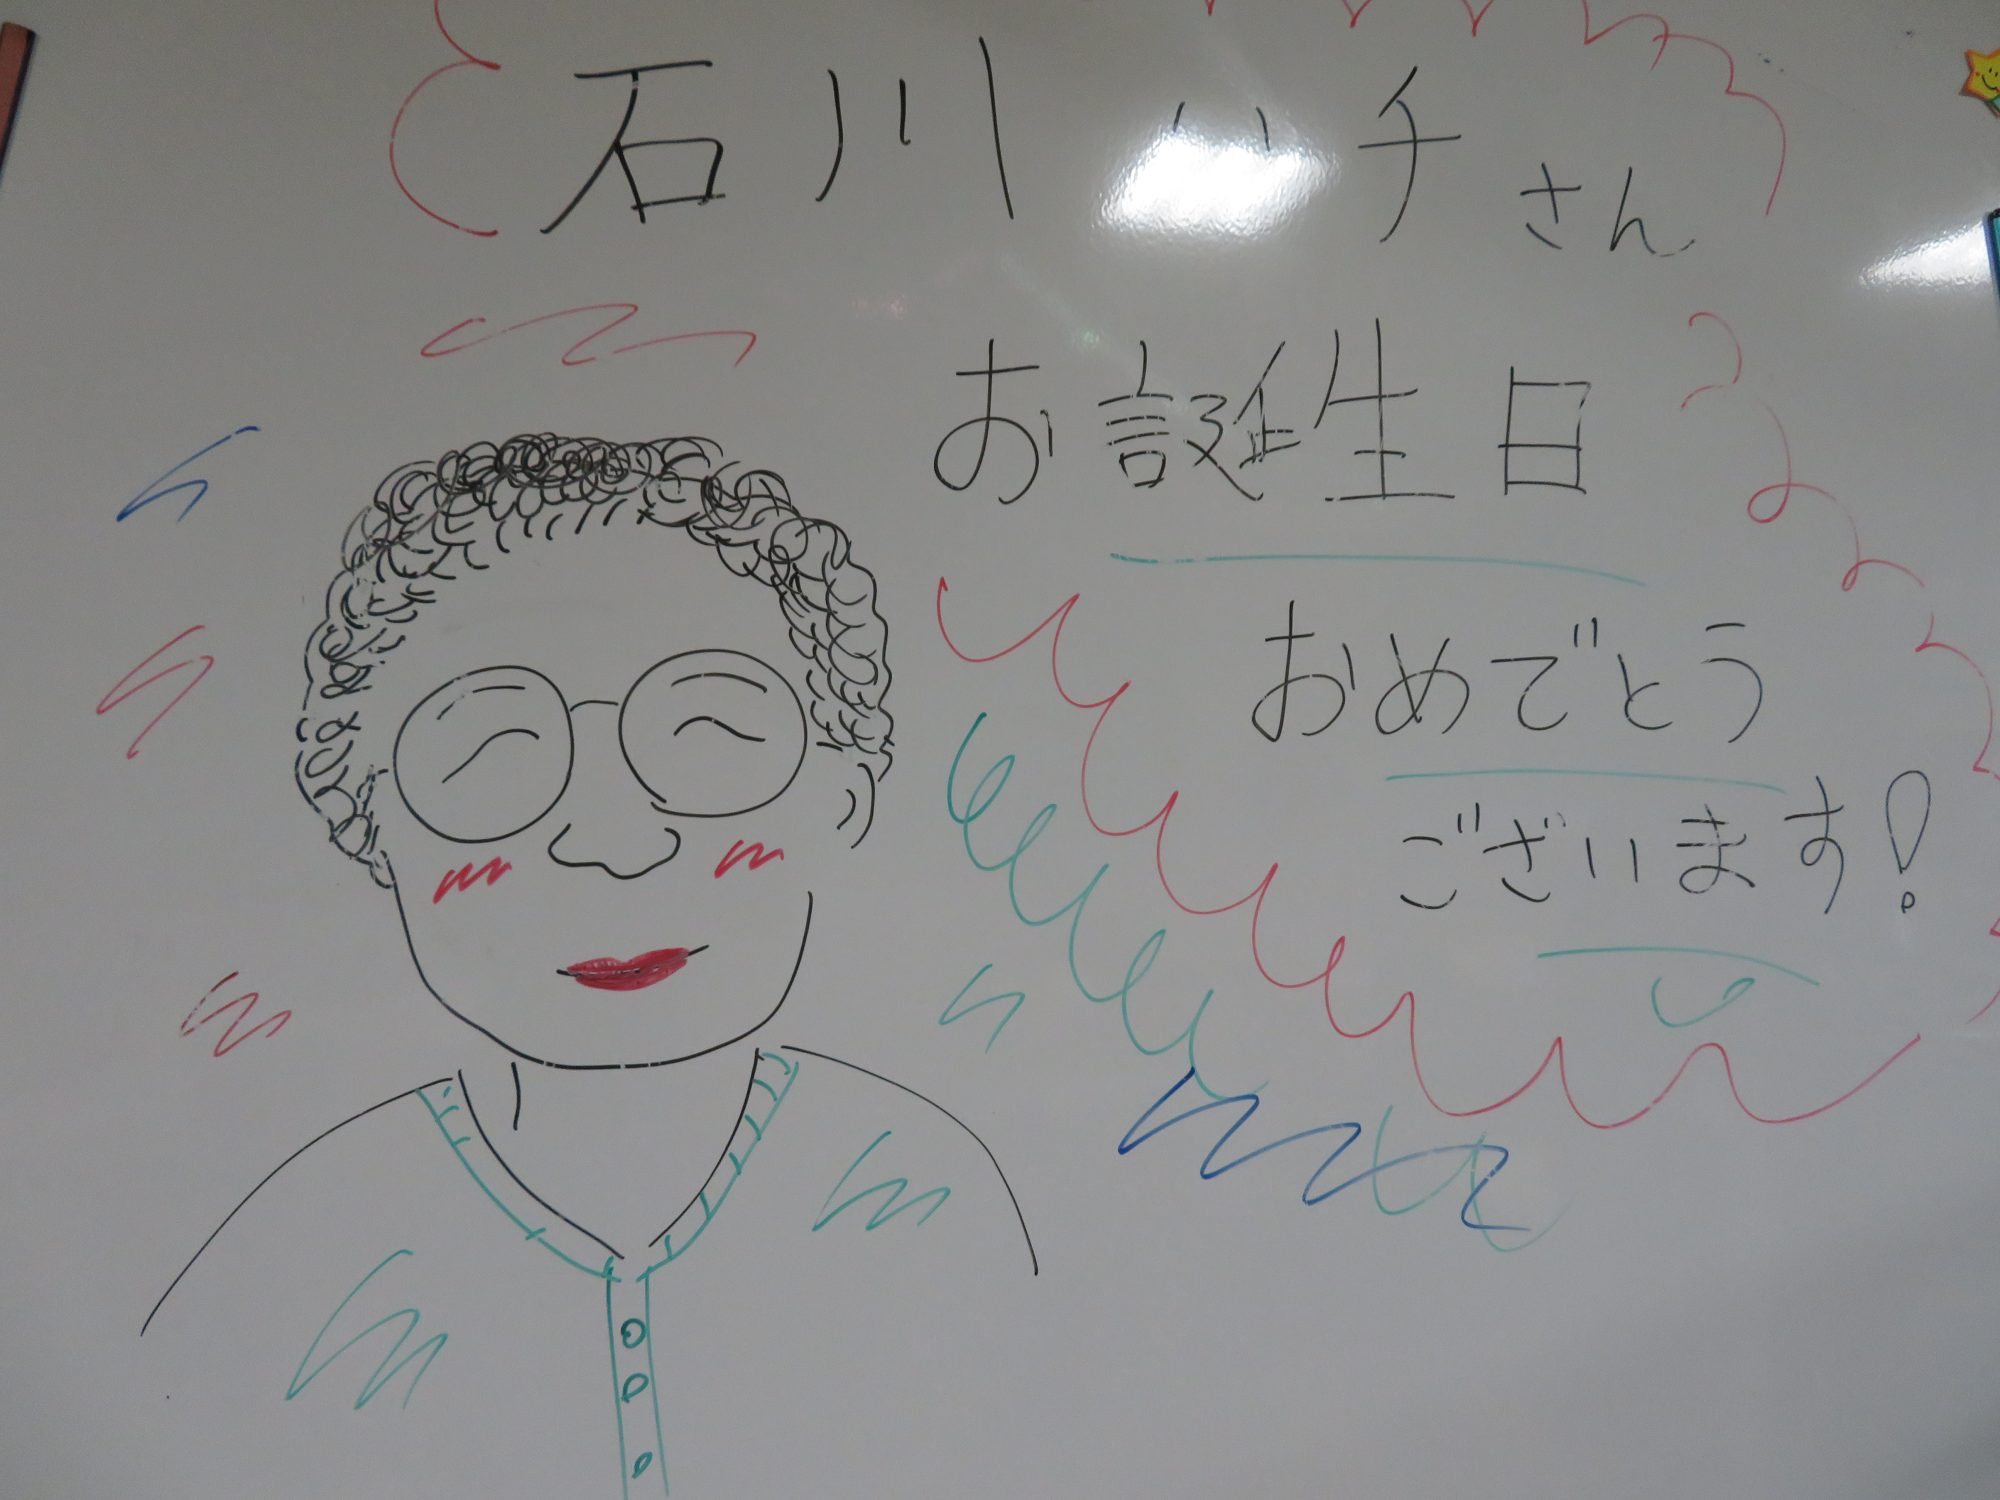 石川 さん
お誕生日
おめでとう
ございます!